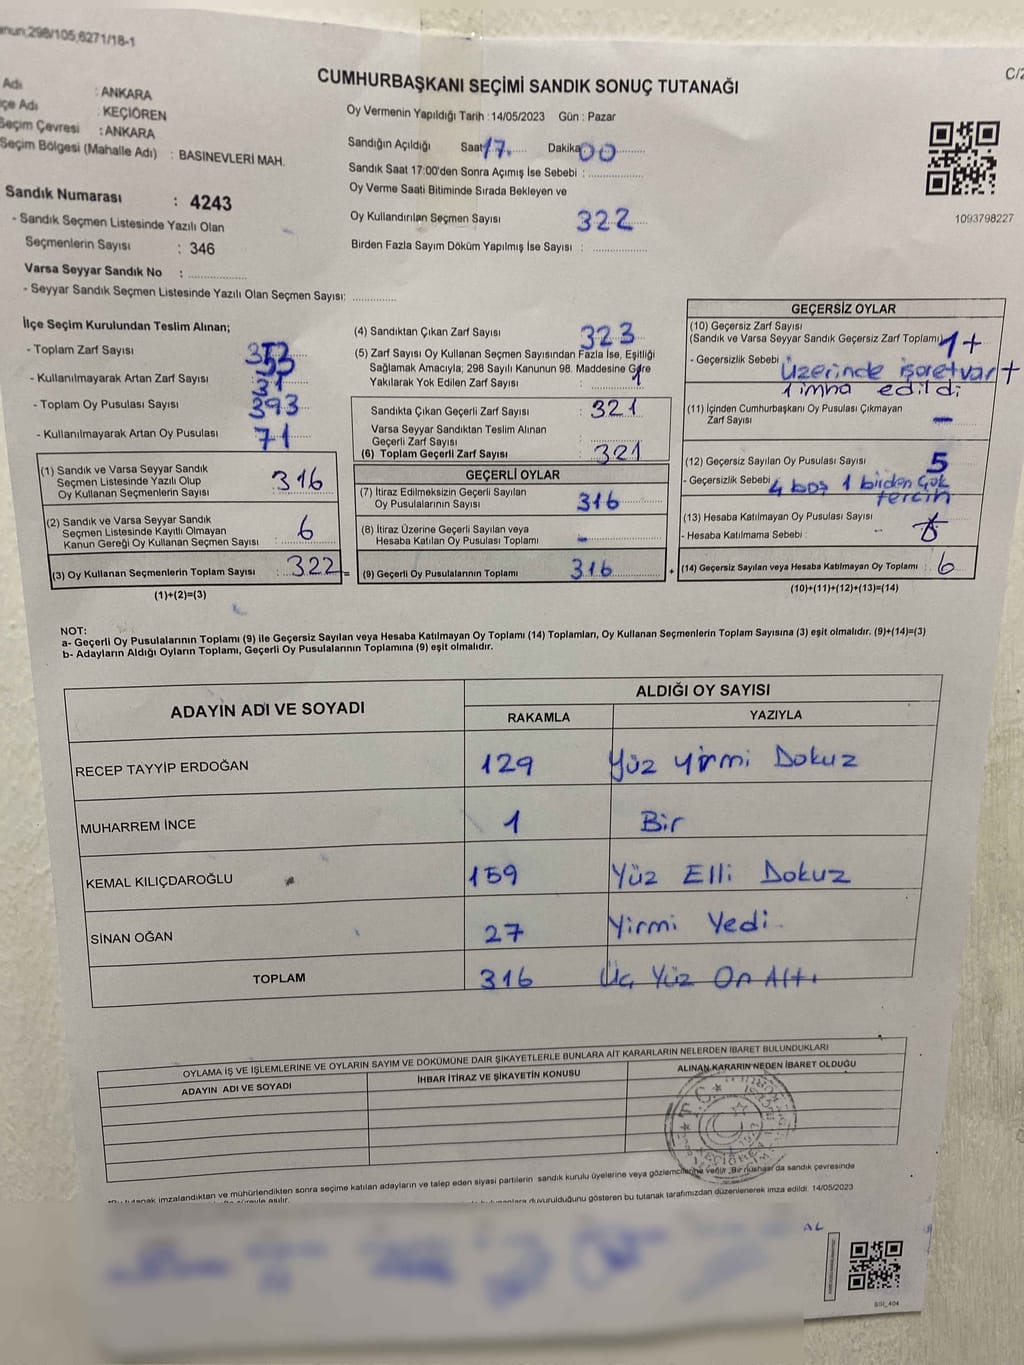 anun;298/105,6271/18-1
C/2
CUMHURBAŞKANI SEÇİMİ SANDIK SONUÇ TUTANAĞI
Adı : ANKARA
çe Adı : KEÇİÖREN
Seçim Çevresi : ANKARA
Seçim Bölgesi (Mahalle Adı) : BASINEVLERİ MAH.
Sandık Numarası : 4243
- Sandık Seçmen Listesinde Yazılı Olan
Seçmenlerin Sayısı : 346
Varsa Seyyar Sandık No : ................
- Seyyar Sandık Seçmen Listesinde Yazılı Olan Seçmen Sayısı: ............
Oy Vermenin Yapıldığı Tarih : 14/05/2023 Gün : Pazar
Sandığın Açıldığı Saat 17. Dakika 00
Sandık Saat 17:00'den Sonra Açımış İse Sebebi :
Oy Verme Saati Bitiminde Sırada Bekleyen ve
Oy Kullandırılan Seçmen Sayısı 322
Birden Fazla Sayım Döküm Yapılmış İse Sayısı :
1093798227
İlçe Seçim Kurulundan Teslim Alınan;
- Toplam Zarf Sayısı 353
- Kullanılmayarak Artan Zarf Sayısı 31
- Toplam Oy Pusulası Sayısı 393
- Kullanılmayarak Artan Oy Pusulası 71
(1) Sandık ve Varsa Seyyar Sandık
Seçmen Listesinde Yazılı Olup
Oy Kullanan Seçmenlerin Sayısı 316
(2) Sandık ve Varsa Seyyar Sandık
Seçmen Listesinde Kayıtlı Olmayan
Kanun Gereği Oy Kullanan Seçmen Sayısı : 6
(3) Oy Kullanan Seçmenlerin Toplam Sayısı : 322 =
(1)+(2)=(3)
(4) Sandıktan Çıkan Zarf Sayısı 323
(5) Zarf Sayısı Oy Kullanan Seçmen Sayısından Fazla İse, Eşitliği
Sağlamak Amacıyla; 298 Sayılı Kanunun 98. Maddesine Göre
Yakılarak Yok Edilen Zarf Sayısı : 1
Sandıkta Çıkan Geçerli Zarf Sayısı : 321
Varsa Seyyar Sandıktan Teslim Alınan
Geçerli Zarf Sayısı :
(6) Toplam Geçerli Zarf Sayısı : 321
GEÇERLİ OYLAR
(7) İtiraz Edilmeksizin Geçerli Sayılan
Oy Pusulasının Sayısı : 316
(8) İtiraz Üzerine Geçerli Sayılan veya
Hesaba Katılan Oy Pusulası Toplamı : -
(9) Geçerli Oy Pusulalarının Toplamı 316 +
GEÇERSİZ OYLAR
(10) Geçersiz Zarf Sayısı
(Sandık ve Varsa Seyyar Sandık Geçersiz Zarf Toplamı) 1+
- Geçersizlik Sebebi : Üzerinde işaret var +
1 imha edildi
(11) İçinden Cumhurbaşkanı Oy Pusulası Çıkmayan
Zarf Sayısı -
(12) Geçersiz Sayılan Oy Pusulası Sayısı 5
- Geçersizlik Sebebi : 4 boş 1 birden çok
tercih
(13) Hesaba Katılmayan Oy Pusulası Sayısı
- Hesaba Katılmama Sebebi : -
(14) Geçersiz Sayılan veya Hesaba Katılmayan Oy Toplamı : 6
(10)+(11)+(12)+(13)=(14)
NOT:
a- Geçerli Oy Pusulalarının Toplamı (9) ile Geçersiz Sayılan veya Hesaba Katılmayan Oy Toplamı (14) Toplamları, Oy Kullanan Seçmenlerin Toplam Sayısına (3) eşit olmalıdır. (9)+(14)=(3)
b- Adayların Aldığı Oyların Toplamı, Geçerli Oy Pusulalarının Toplamına (9) eşit olmalıdır.
ADAYIN ADI VE SOYADI
ALDIĞI OY SAYISI
RAKAMLA YAZIYLA
RECEP TAYYİP ERDOĞAN 129 Yüz Yirmi Dokuz
MUHARREM İNCE 1 Bir
KEMAL KILIÇDAROĞLU 159 Yüz Elli Dokuz
SİNAN OĞAN 27 Yirmi Yedi.
TOPLAM 316 Üç Yüz On Altı
OYLAMA İŞ VE İŞLEMLERİNE VE OYLARIN SAYIM VE DÖKÜMÜNE DAİR ŞİKAYETLERLE BUNLARA AİT KARARLARIN NELERDEN İBARET BULUNDUKLARI
ADAYIN ADI VE SOYADI İHBAR İTİRAZ VE ŞİKAYETİN KONUSU ALINAN KARARIN NEDEN İBARET OLDUĞU
T.C.
KEÇİÖREN
tutanak imzalandıktan ve mühürlendikten sonra seçime katılan adayların ve talep eden siyasi partilerin sandık kurulu üyelerine veya gözlemcilerine verilir. Bir nüshası da sandık çevresinde
duyurulduğunu gösteren bu tutanak tarafımızdan düzenlenerek imza edildi. 14/05/2023